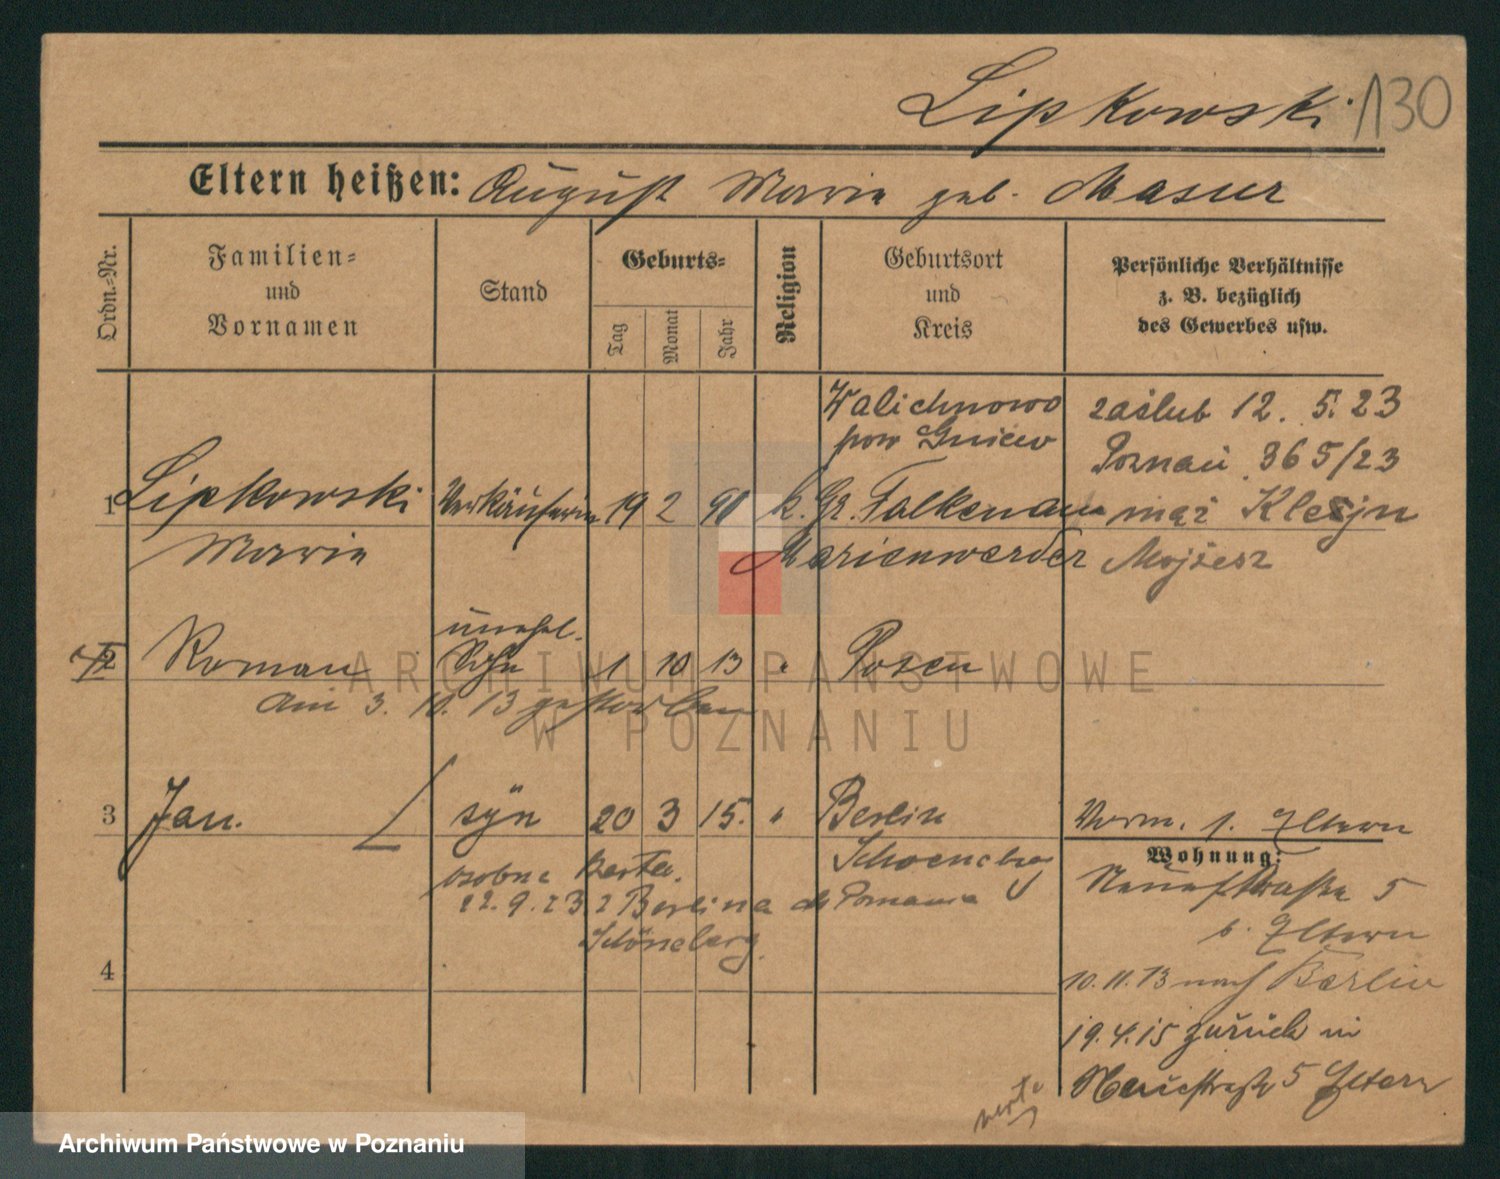 Lipkowski 130
Eltern heißen: August Marie geb. Masur
Ordn.-Nr.
Familien-
und
Vornamen
Stand
Geburts-
Tag
Monat
Jahr
Religion
Geburtsort
und
Kreis
Persönliche Verhältnisse
z. B. bezüglich
des Gewerbes usw.
Walichnowo
pow Gniew
zaślub 12. 5. 23
Poznań 365/23
1 Lipkowski Verkäuferin 19 2 90 k. Gr. Falkenau
mąż Klejn
Marie
Marienwerder
Mojżesz
unehel.
2 Roman Sohn 1 10 13 " Posen
am 3. 10. 13 gestorben
3 Jan. syn 20 3 15. " Berlin
Schoeneberg
Verm. s. Eltern
Wohnung:
osobna karta.
22.9.23 z Berlina do Poznania
Schöneberg.
4
Neuestraße 5
b. Eltern
10.11.13 nach Berlin
19.4.15 zurück in
Neuestraße 5 Eltern
verte
ARCHIWUM PAŃSTWOWE
W POZNANIU
Archiwum Państwowe w Poznaniu